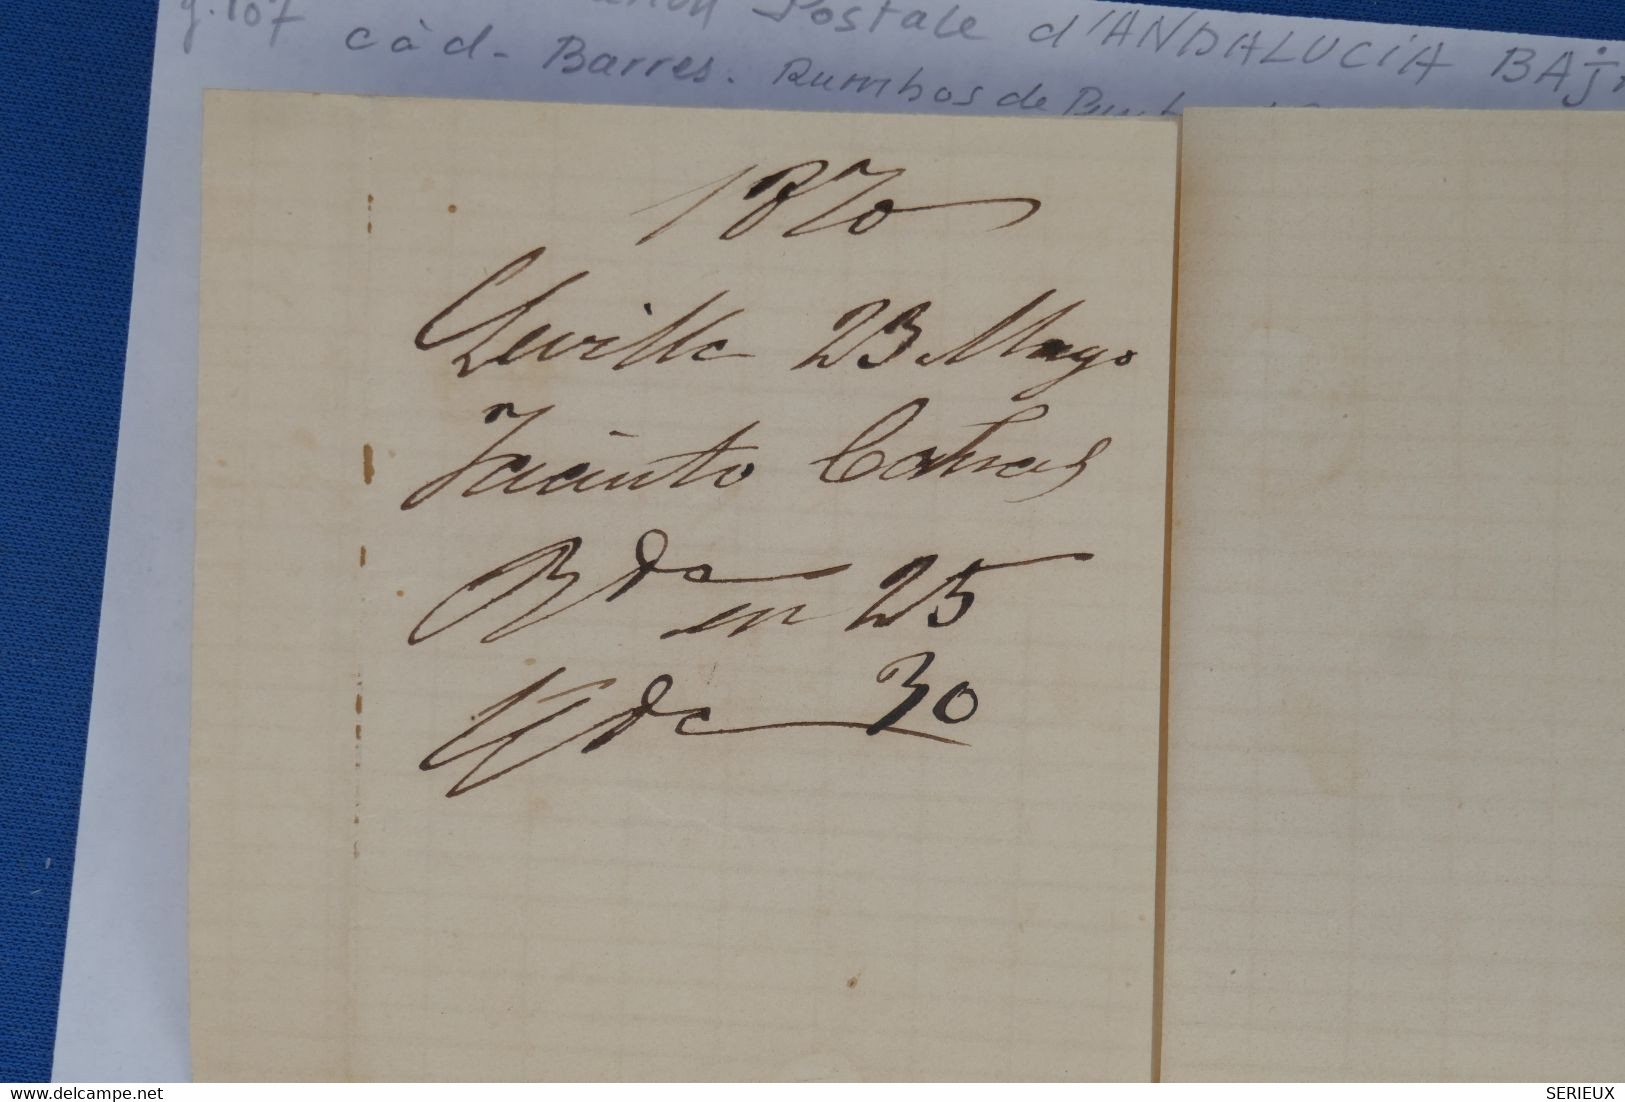 Postale d'ANDALUCIA BAJ
g. 107 c à d - Barres. Rumbos de
1870
Sevilla 23 Mayo
Jacinto
Rda en 25
Cda 30
delcampe.net
SERIEUX